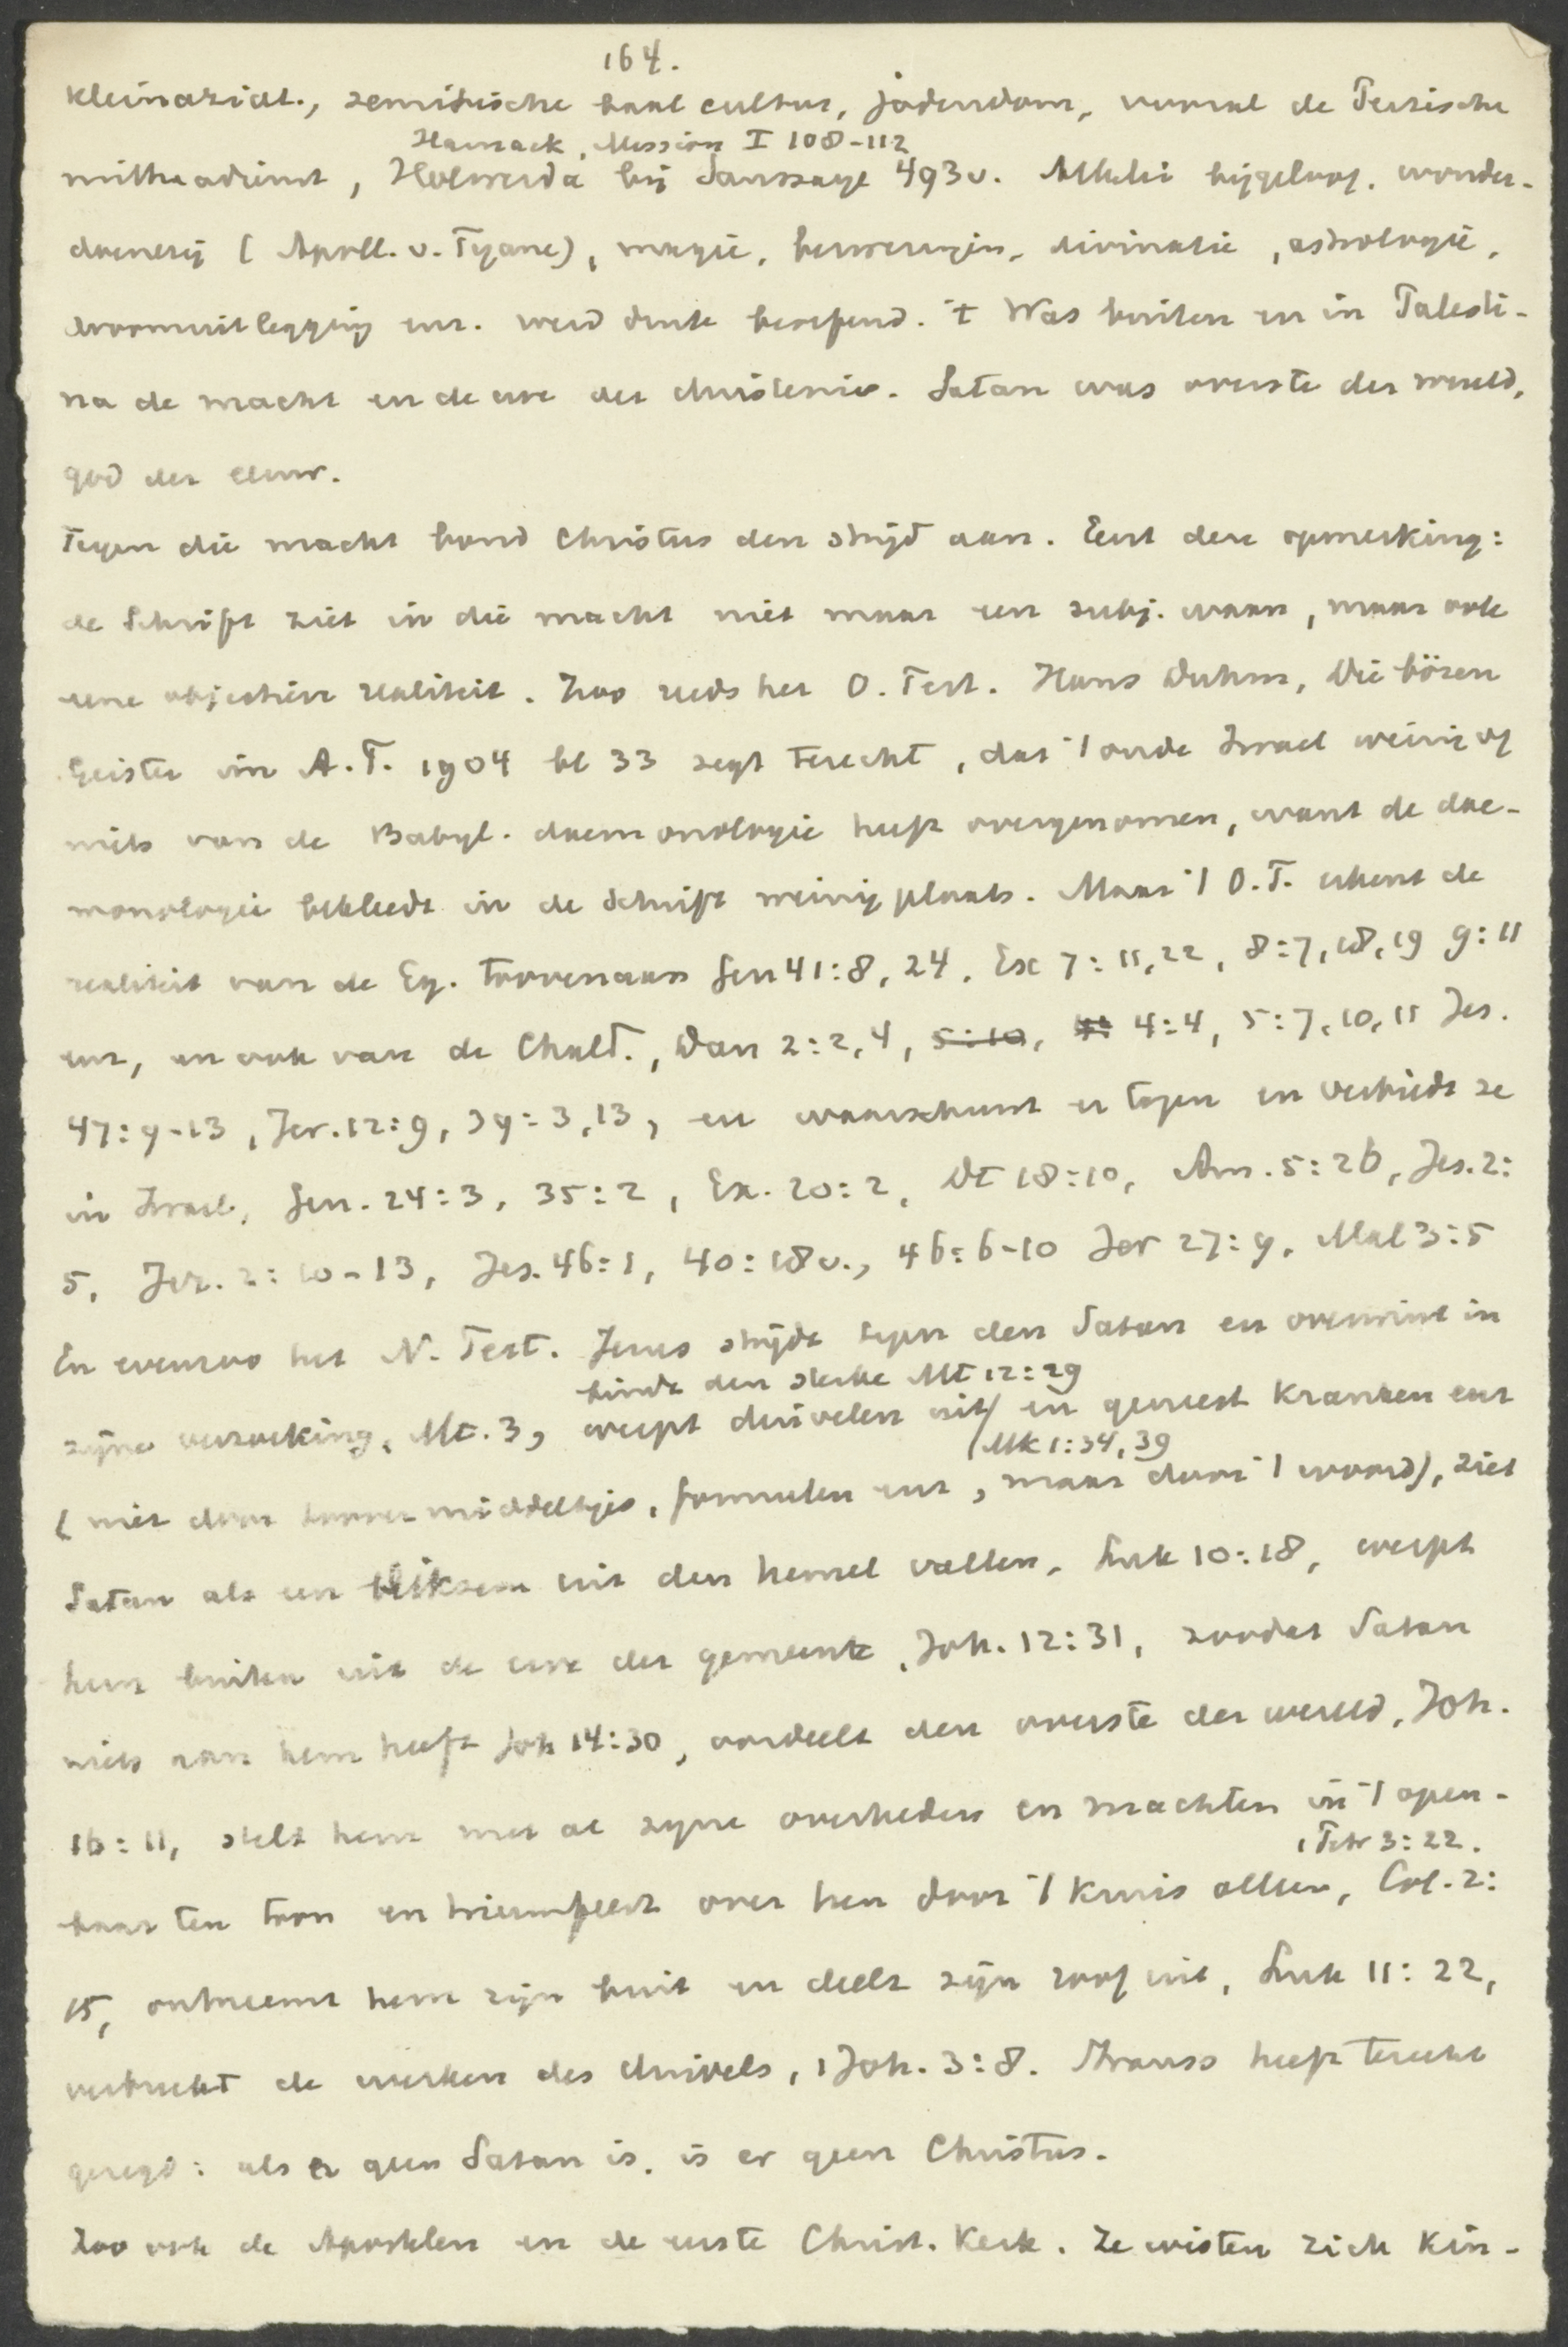 164.
Kleinaziat., semitische baal cultus, jodendom, vooral de Perzische
Harnack, Mission I 108-112
mithradienst, Holwerda bij Saussaye 493v. Allerlei bijgeloof, wonder-
doenerij (Apoll. v. Tyane), magie, bezweringen, divinatie, astrologie,
droomuitlegging enz. werd druk beoefend. 't Was buiten en in Palesti-
na de macht en de eeuw der duisternis. Satan was overste der wereld,
god der eeuw.
Tegen die macht bond Christus den strijd aan. Eerst deze opmerking:
de Schrift ziet in die macht niet maar een subj. waan, maar ook
eene objectieve realiteit. Zoo reeds het O. Test. Hans Duhm, Die bösen
Geister im A.T. 1904 bl 33 zegt terecht, dat 't oude Israel weinig of
niets van de Babyl. daemonologie heeft overgenomen, want de dae-
monologie bekleedt in de Schrift weinig plaats. Maar 't O.T. erkent de
realiteit van de Eg. toovenaars Gen 41:8, 24. Ex 7:11,22, 8:7,18,19 9:11
enz, en ook van de Chald., Dan 2:2,4, 5:10, 4:4, 5:7,10,11 Jes.
47:9-13, Jer. 12:9, 39:3,13, en waarschuwt er tegen en verbiedt ze
in Israel, Gen. 24:3, 35:2, Ex. 20:2, Dt 18:10, Am. 5:26, Jes. 2:
5, Jer. 2:10-13, Jes. 46:1, 40:18v., 46:6-10 Jer 27:9, Mal 3:5
En evenzoo het N. Test. Jezus strijdt tegen den Satan en overwint in
bindt den sterke Mt 12:29
zijne verzoeking, Mt. 3, werpt duivelen uit/ en geneest kranken enz
Mk 1:34,39
(niet door toovermiddeltjes, formulen enz, maar door 't woord), ziet
Satan als een bliksem uit den hemel vallen, Luk 10:18, werpt
hem buiten uit de erve der gemeente, Joh. 12:31, zoodat Satan
niets aan hem heeft Joh 14:30, oordeelt den overste der wereld, Joh.
16:11, stelt hem met al zijne overheden en machten in 't open-
1 Petr 3:22.
baar ten toon en triumfeert over hen door 't kruis alleen, Col. 2:
15, ontneemt hem zijn buit en deelt zijn roof uit, Luk 11:22,
verbreekt de werken des duivels, 1 Joh. 3:8. Strauss heeft terecht
gezegd: als er geen Satan is, is er geen Christus.
Zoo ook de Apostelen en de eerste Christ. Kerk. Ze wisten zich kin-